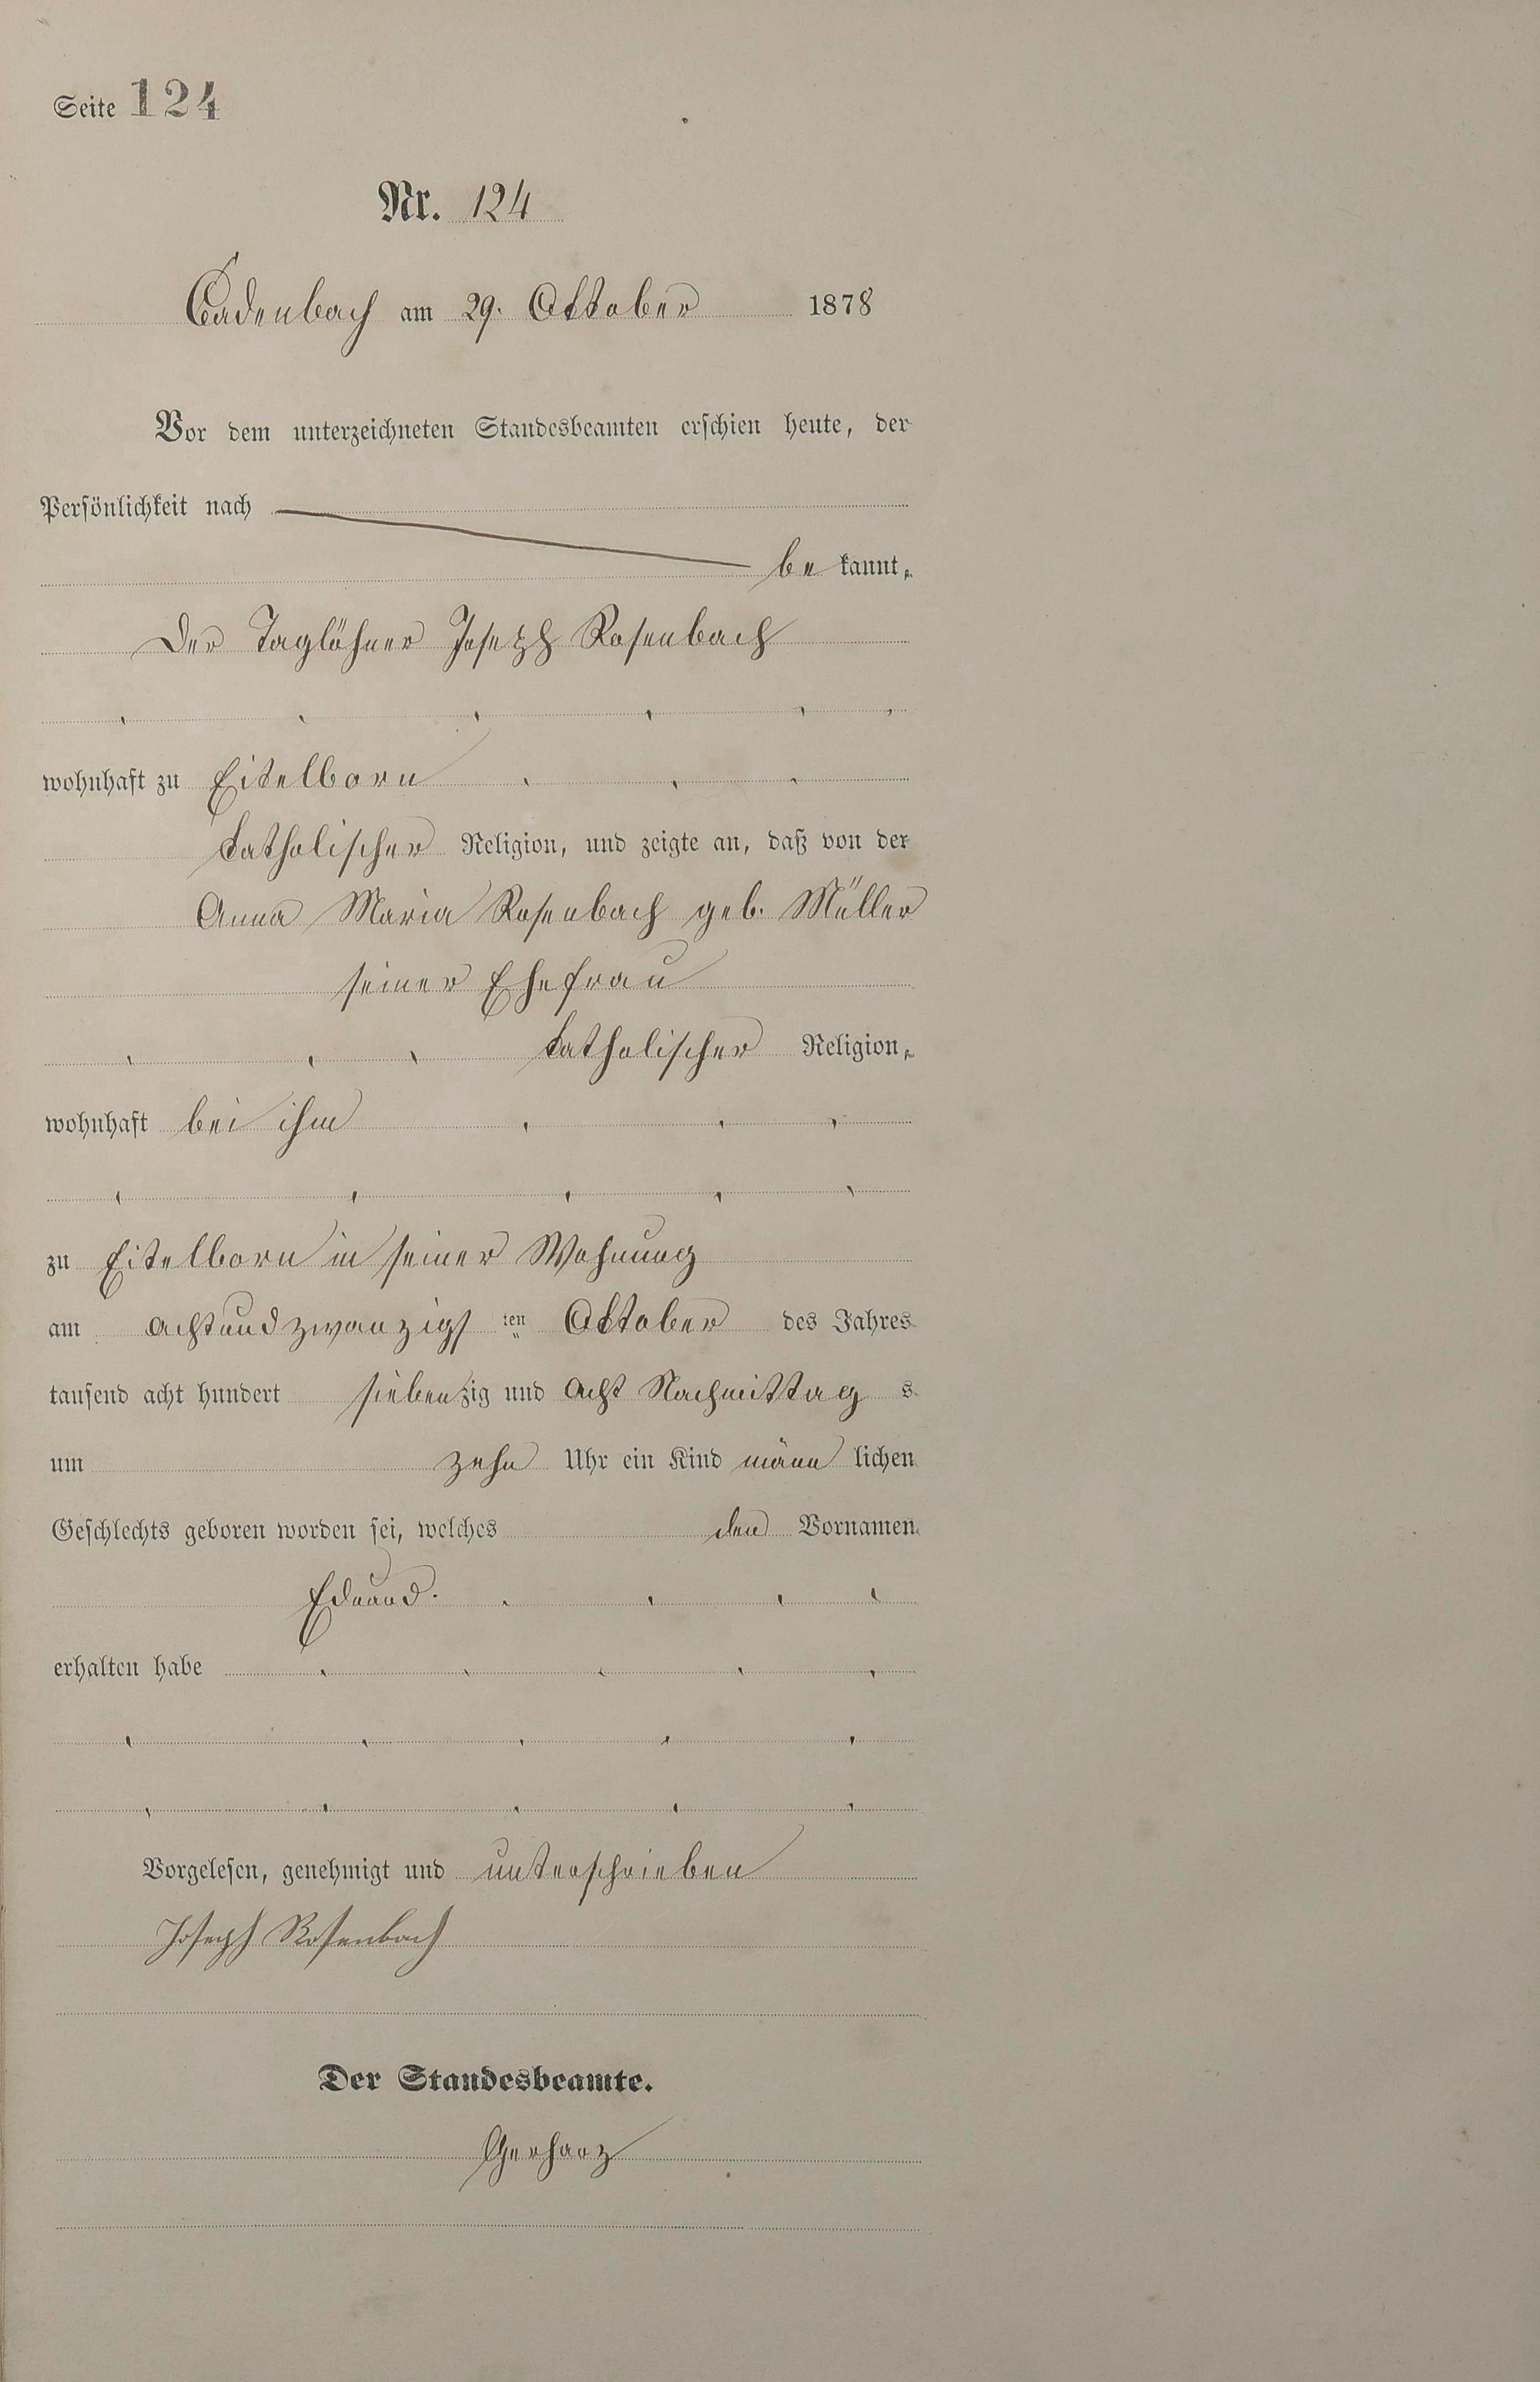 Seite 124
Nr. 124
Cadenbach am 29. Oktober 1878
Vor dem unterzeichneten Standesbeamten erschien heute, der
Persönlichkeit nach
be kannt,
Der Taglöhner Joseph Rosenbach
wohnhaft zu Eitelborn
katholischer Religion, und zeigte an, daß von der
Anna Maria Rosenbach geb. Müller
seiner Ehefrau
katholischer Religion,
wohnhaft bei ihm
zu Eitelborn in seiner Wohnung
am achtundzwanzigs ten Oktober des Jahres
tausend acht hundert siebenzig und acht Nachmittag s
um zehn Uhr ein Kind männ lichen
Geschlechts geboren worden sei, welches den Vornamen
Eduard.
erhalten habe
Vorgelesen, genehmigt und unterschrieben
Joseph Rosenbach
Der Standesbeamte.
Gerharz